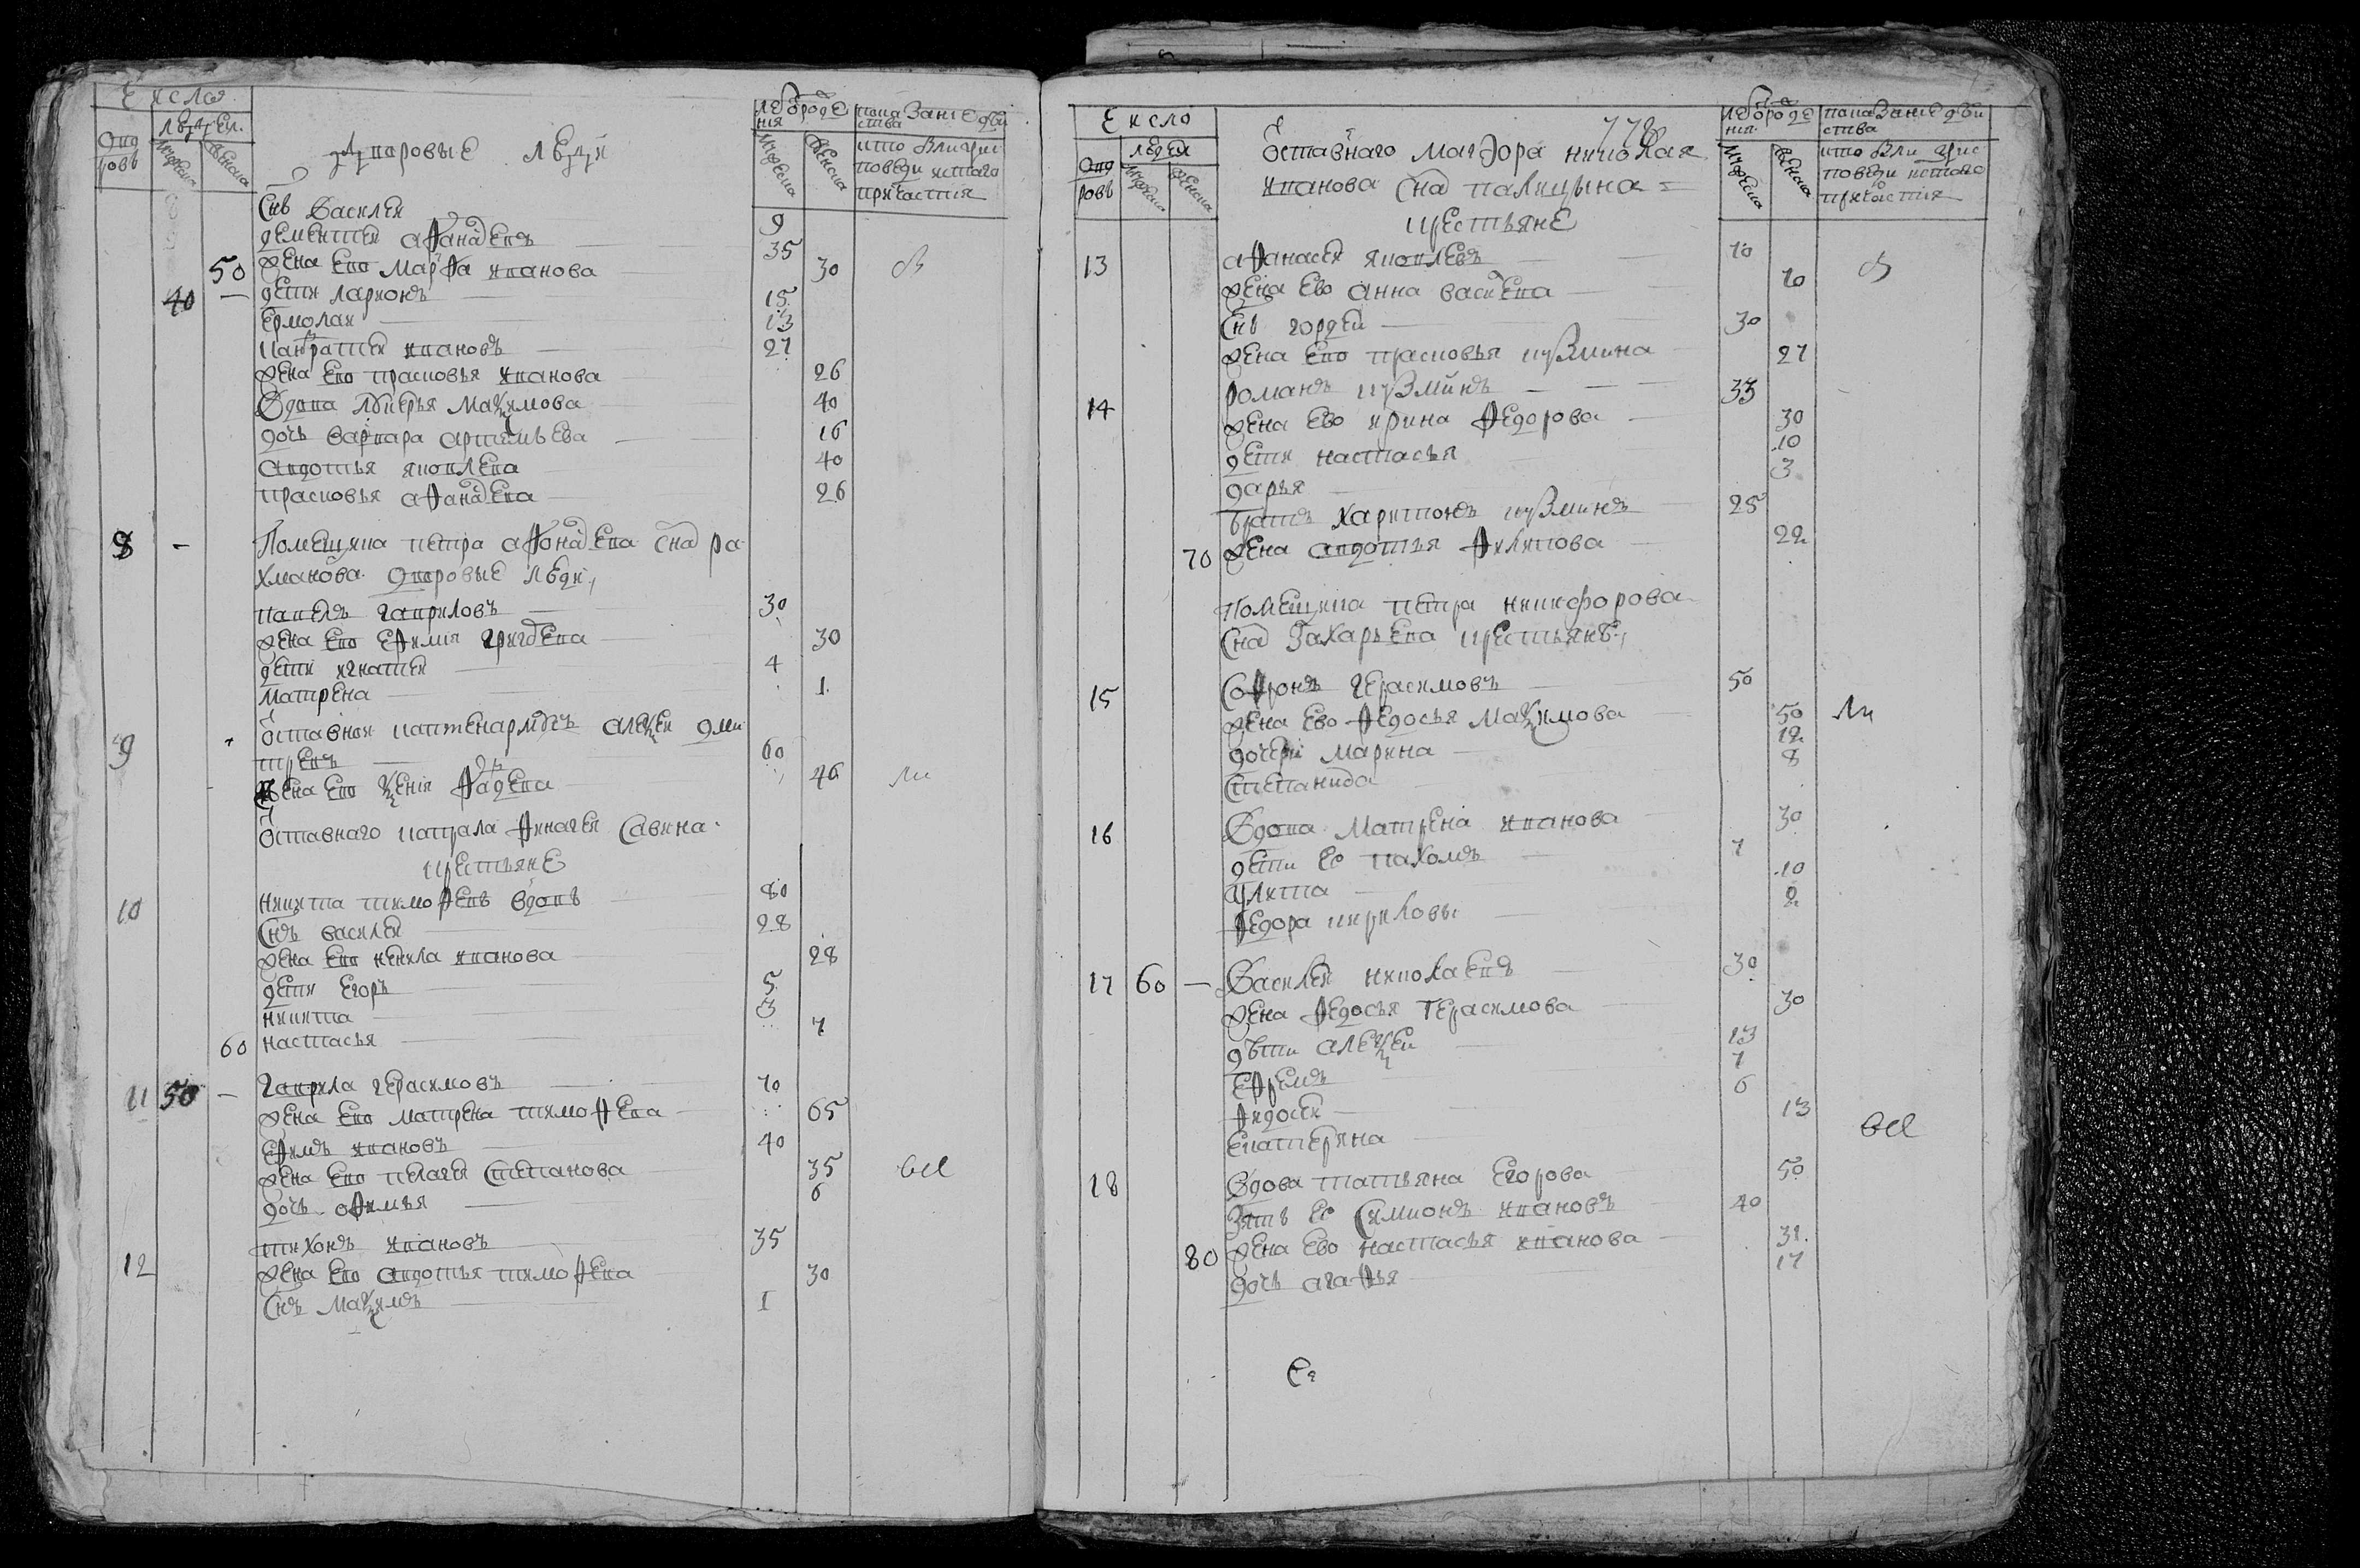 Число
людеи
дво
ровъ
мужеска
женска
дворовые люди
лѣ от роде
ния
мужеска
женска
показание дѣи
ства
кто был у ис
поведи и святаго
причастия
Снъ Василеи 9
дементеи афанасевъ 35
50 жена ево марфа иванова 30
40 — дети ларионъ 15
ермолаи 13
панкратеи ивановъ 27
жена ево прасковья иванова 26
вдова лукерья максимова 40
дочь варвара артемьева 16
авдотья яковлева 40
прасковья афанасева 26
8 — Помещика петра афонасева сна ра
хманова дворовые люди
павелъ гавриловъ 30
жена ево ефимия григорева 30
дети игнатеи 4
матрена 1
9 отставнои каптенармусъ алексеи дми
треевъ 60
жена ево ксения фадева 46
отставного капрала финагея савина
крестьяне
10 никита тимофеевъ вдовъ 80
Снъ василеи 28
жена ево ненила иванова 28
дети егоръ 5
никита 3
60 настасья 7
11 50 — гаврила герасимовъ 70
жена ево матрена тимофева 65
ефимъ ивановъ 40
жена ево пелагея степанова 35 все
дочь офимья 6
12 тихонъ ивановъ 35
жена ево авдотья тимофева 30
Снъ максимъ 1
778
Число
людеи
дво
ровъ
мужеска
женска
отставного маэора николая
иванова сна палицына
крестьяне
лѣ от роде
нии
мужеска
женска
показание дѣи
ства
кто был у ис
поведи и святаго
причастия
13 афанасеи яковлевъ 70
жена ево анна васильева 70
Снъ гордеи 30
жена ево прасковья кузмина 27
14 романъ кузминъ 33
жена ево ирина федорова 30
дети настасья 10
дарья 3
братъ харитонъ кузминъ 25
70 жена авдотья филипова 22
Помещика петра никифорова
сна захарьева крестьянѣ
15 Софронъ герасимовъ 50
жена ево федосья максимова 50
дочери марина 12
степанида 8
16 вдова матрена иванова 30
дети ее пахомъ 7
улита 10
федора кириловы 2
17 60 — Василеи николаевъ 30
жена федосья герасимова 30
дѣти алексеи 13
ефремъ 7
федосеи 6
екатерина 13
все
18 вдова татьяна егорова 50
зять ее симионъ ивановъ 40
80 жена ево настасья иванова 31
дочь агафья 17